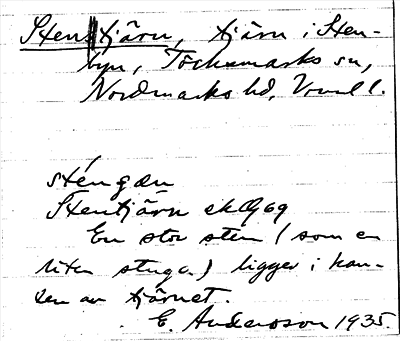 Stens||tjärn, tjärn i Sten-
byn, Töcksmarks sn,
Nordmarks hd, Vrml l.
sténgæn
Stentjärn ek Og 69
En stor sten (som en
liten stuga) ligger i kan-
ten av tjärnet.
E. Andersson 1935.